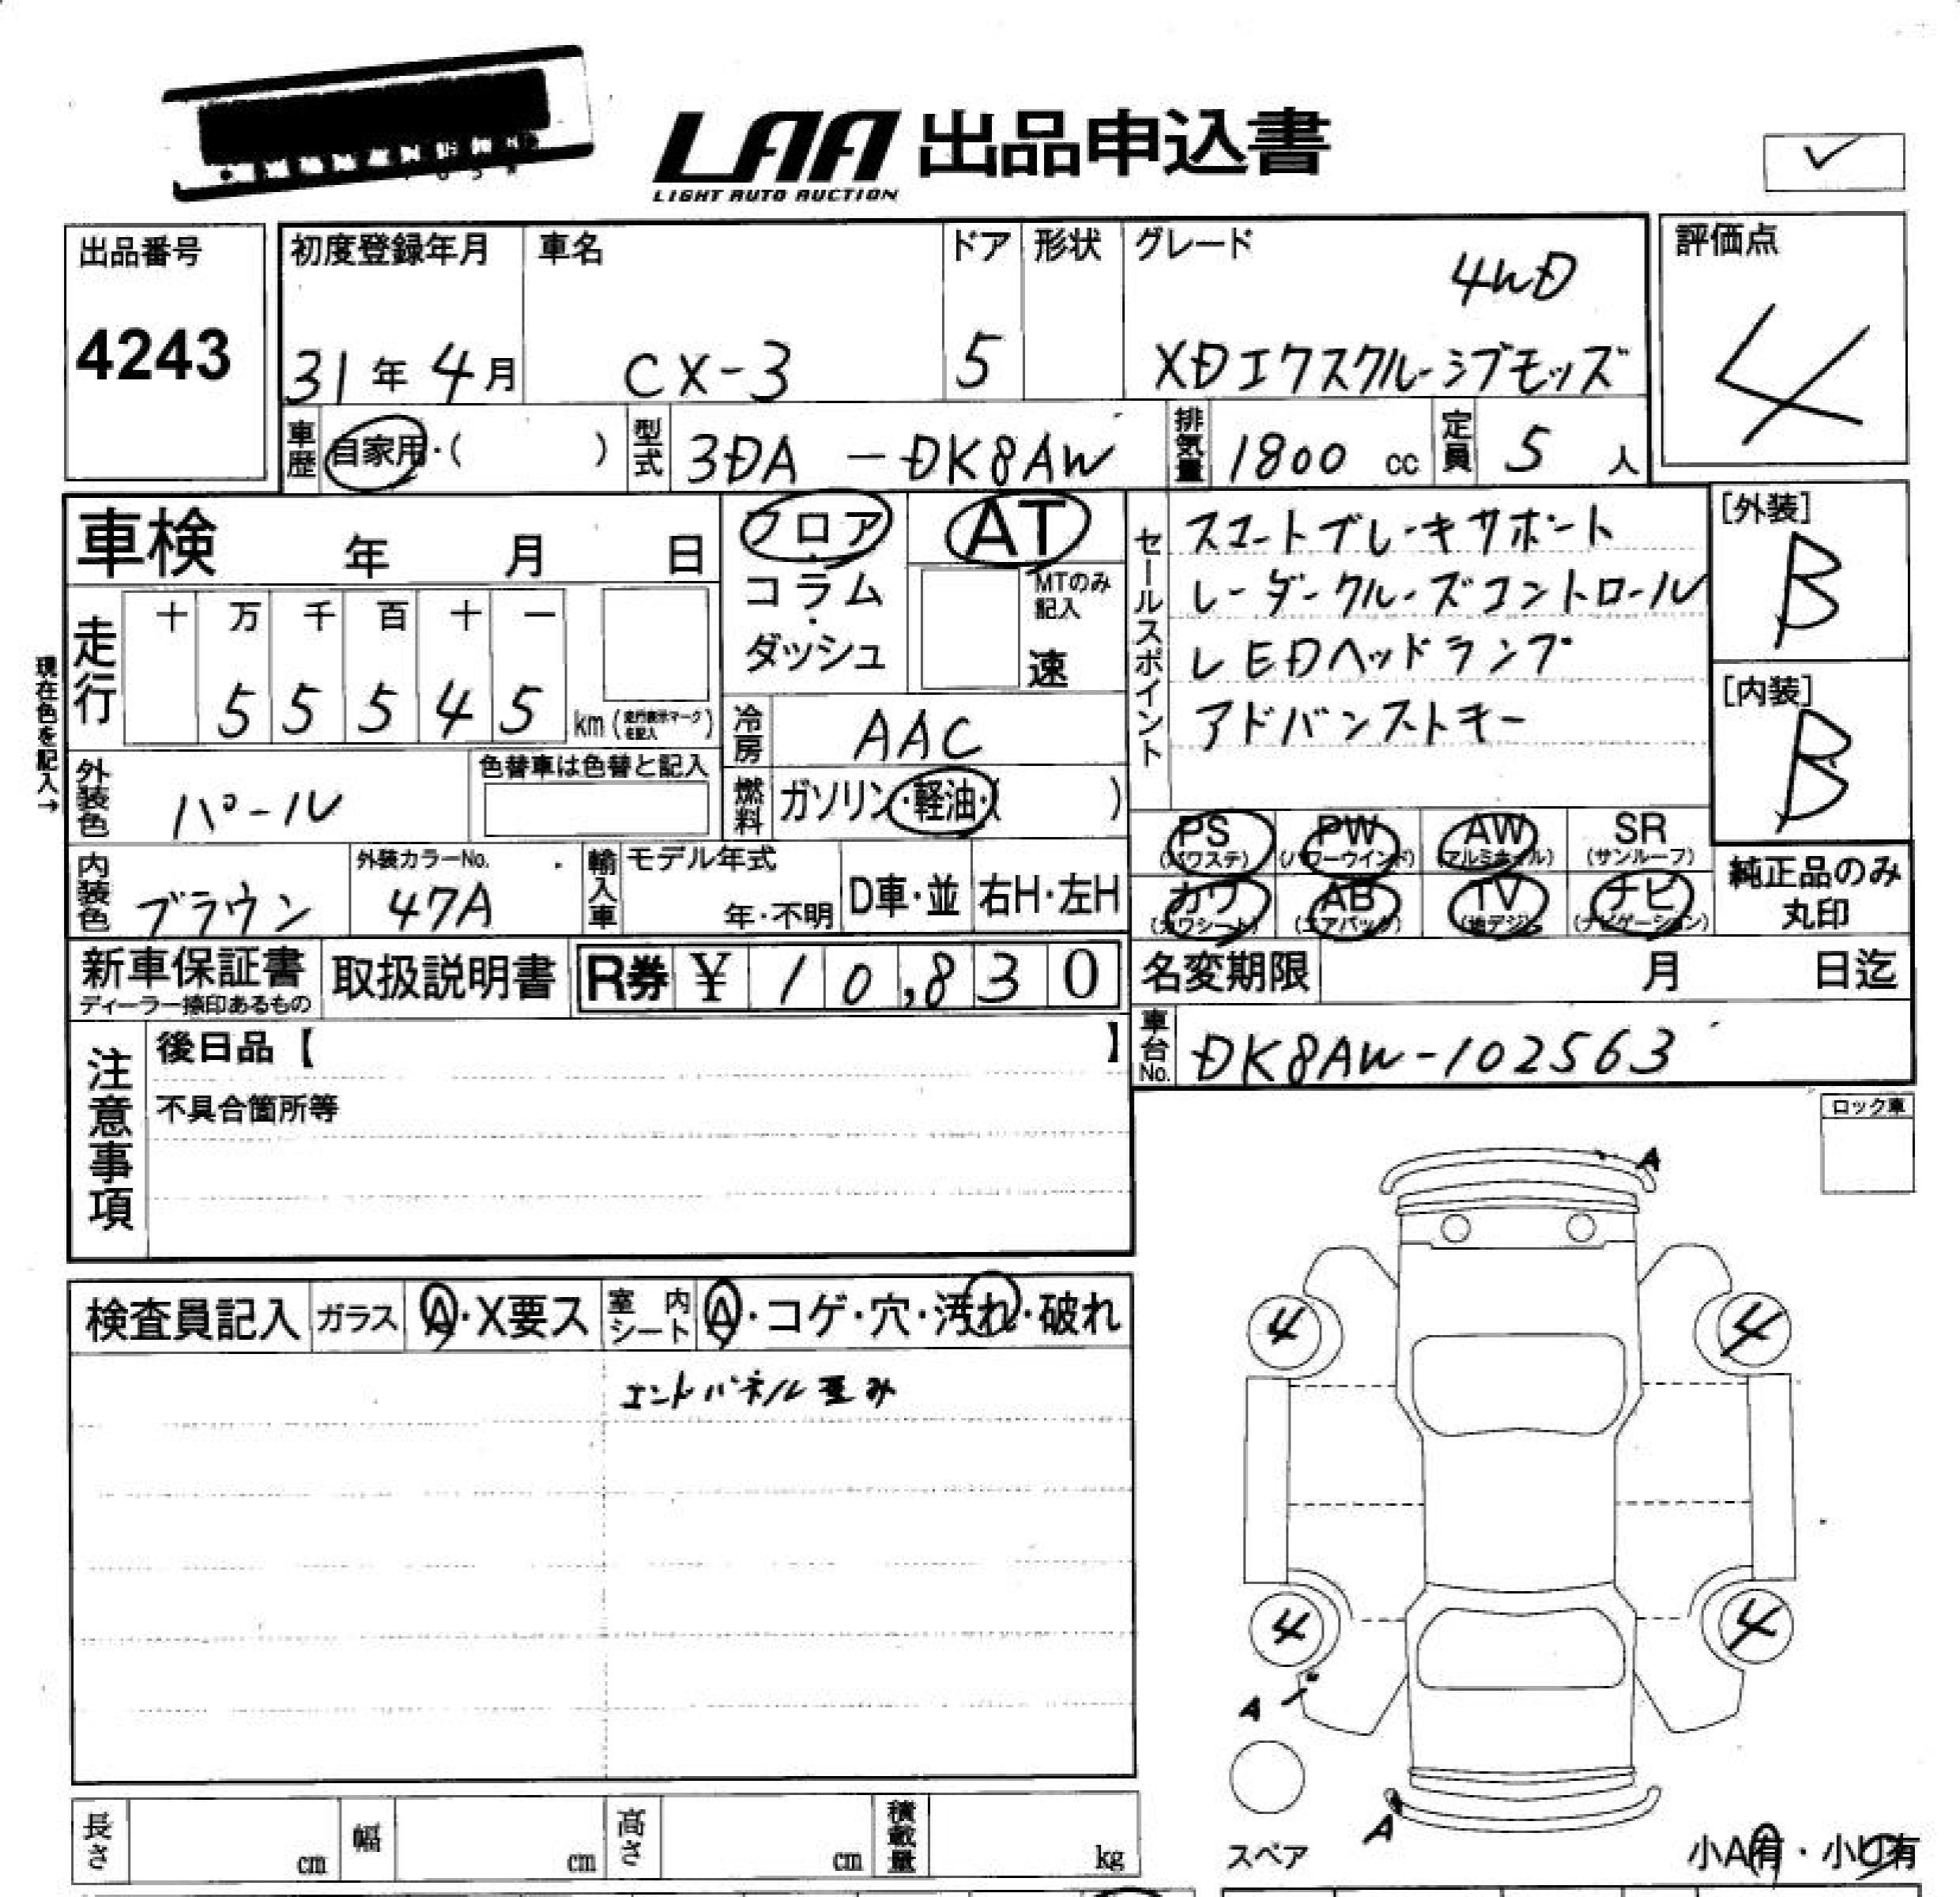 LAA 出品申込書
LIGHT AUTO AUCTION
出品番号
4243
初度登録年月
31年 4月
車名
CX-3
ドア
5
形状
グレード
4WD
XDエクスクルーシブモッズ
評価点
4
車歴
自家用・( )
型式
3DA -DK8AW
排気量
1800 cc
定員
5 人
車検 年 月 日
走行
十 万 千 百 十 一
5 5 5 4 5
km (走行表示マークを記入)
現在色を記入→
外装色
パール
色替車は色替と記入
内装色
ブラウン
外装カラーNo.
47A
フロア
・
コラム
・
ダッシュ
AT
MTのみ記入
速
冷房
AAC
燃料
ガソリン・軽油・( )
輸入車
モデル年式
年・不明
D車・並
右H・左H
セールスポイント
スコートブレーキサポート
レーダークルーズコントロール
LEDヘッドランプ
アドバンストキー
[外装]
B
[内装]
B
PS
(パワステ)
PW
(パワーウインド)
AW
(アルミホイル)
SR
(サンルーフ)
カワ
(カワシート)
AB
(エアバック)
TV
(地デジ)
ナビ
(ナビゲーション)
純正品のみ
丸印
新車保証書
ディーラー捺印あるもの
取扱説明書
R券 ¥ 1 0 ,8 3 0
名変期限 月 日迄
車台No.
DK8AW-102563
注意事項
後日品【 】
不具合箇所等
ロック車
検査員記入
ガラス
A・X要ス
室内シート
A・コゲ・穴・汚れ・破れ
エントパネル歪み
A
4
4
4
4
A
A
スペア
小A有・小U有
長さ cm
幅 cm
高さ cm
積載量 kg